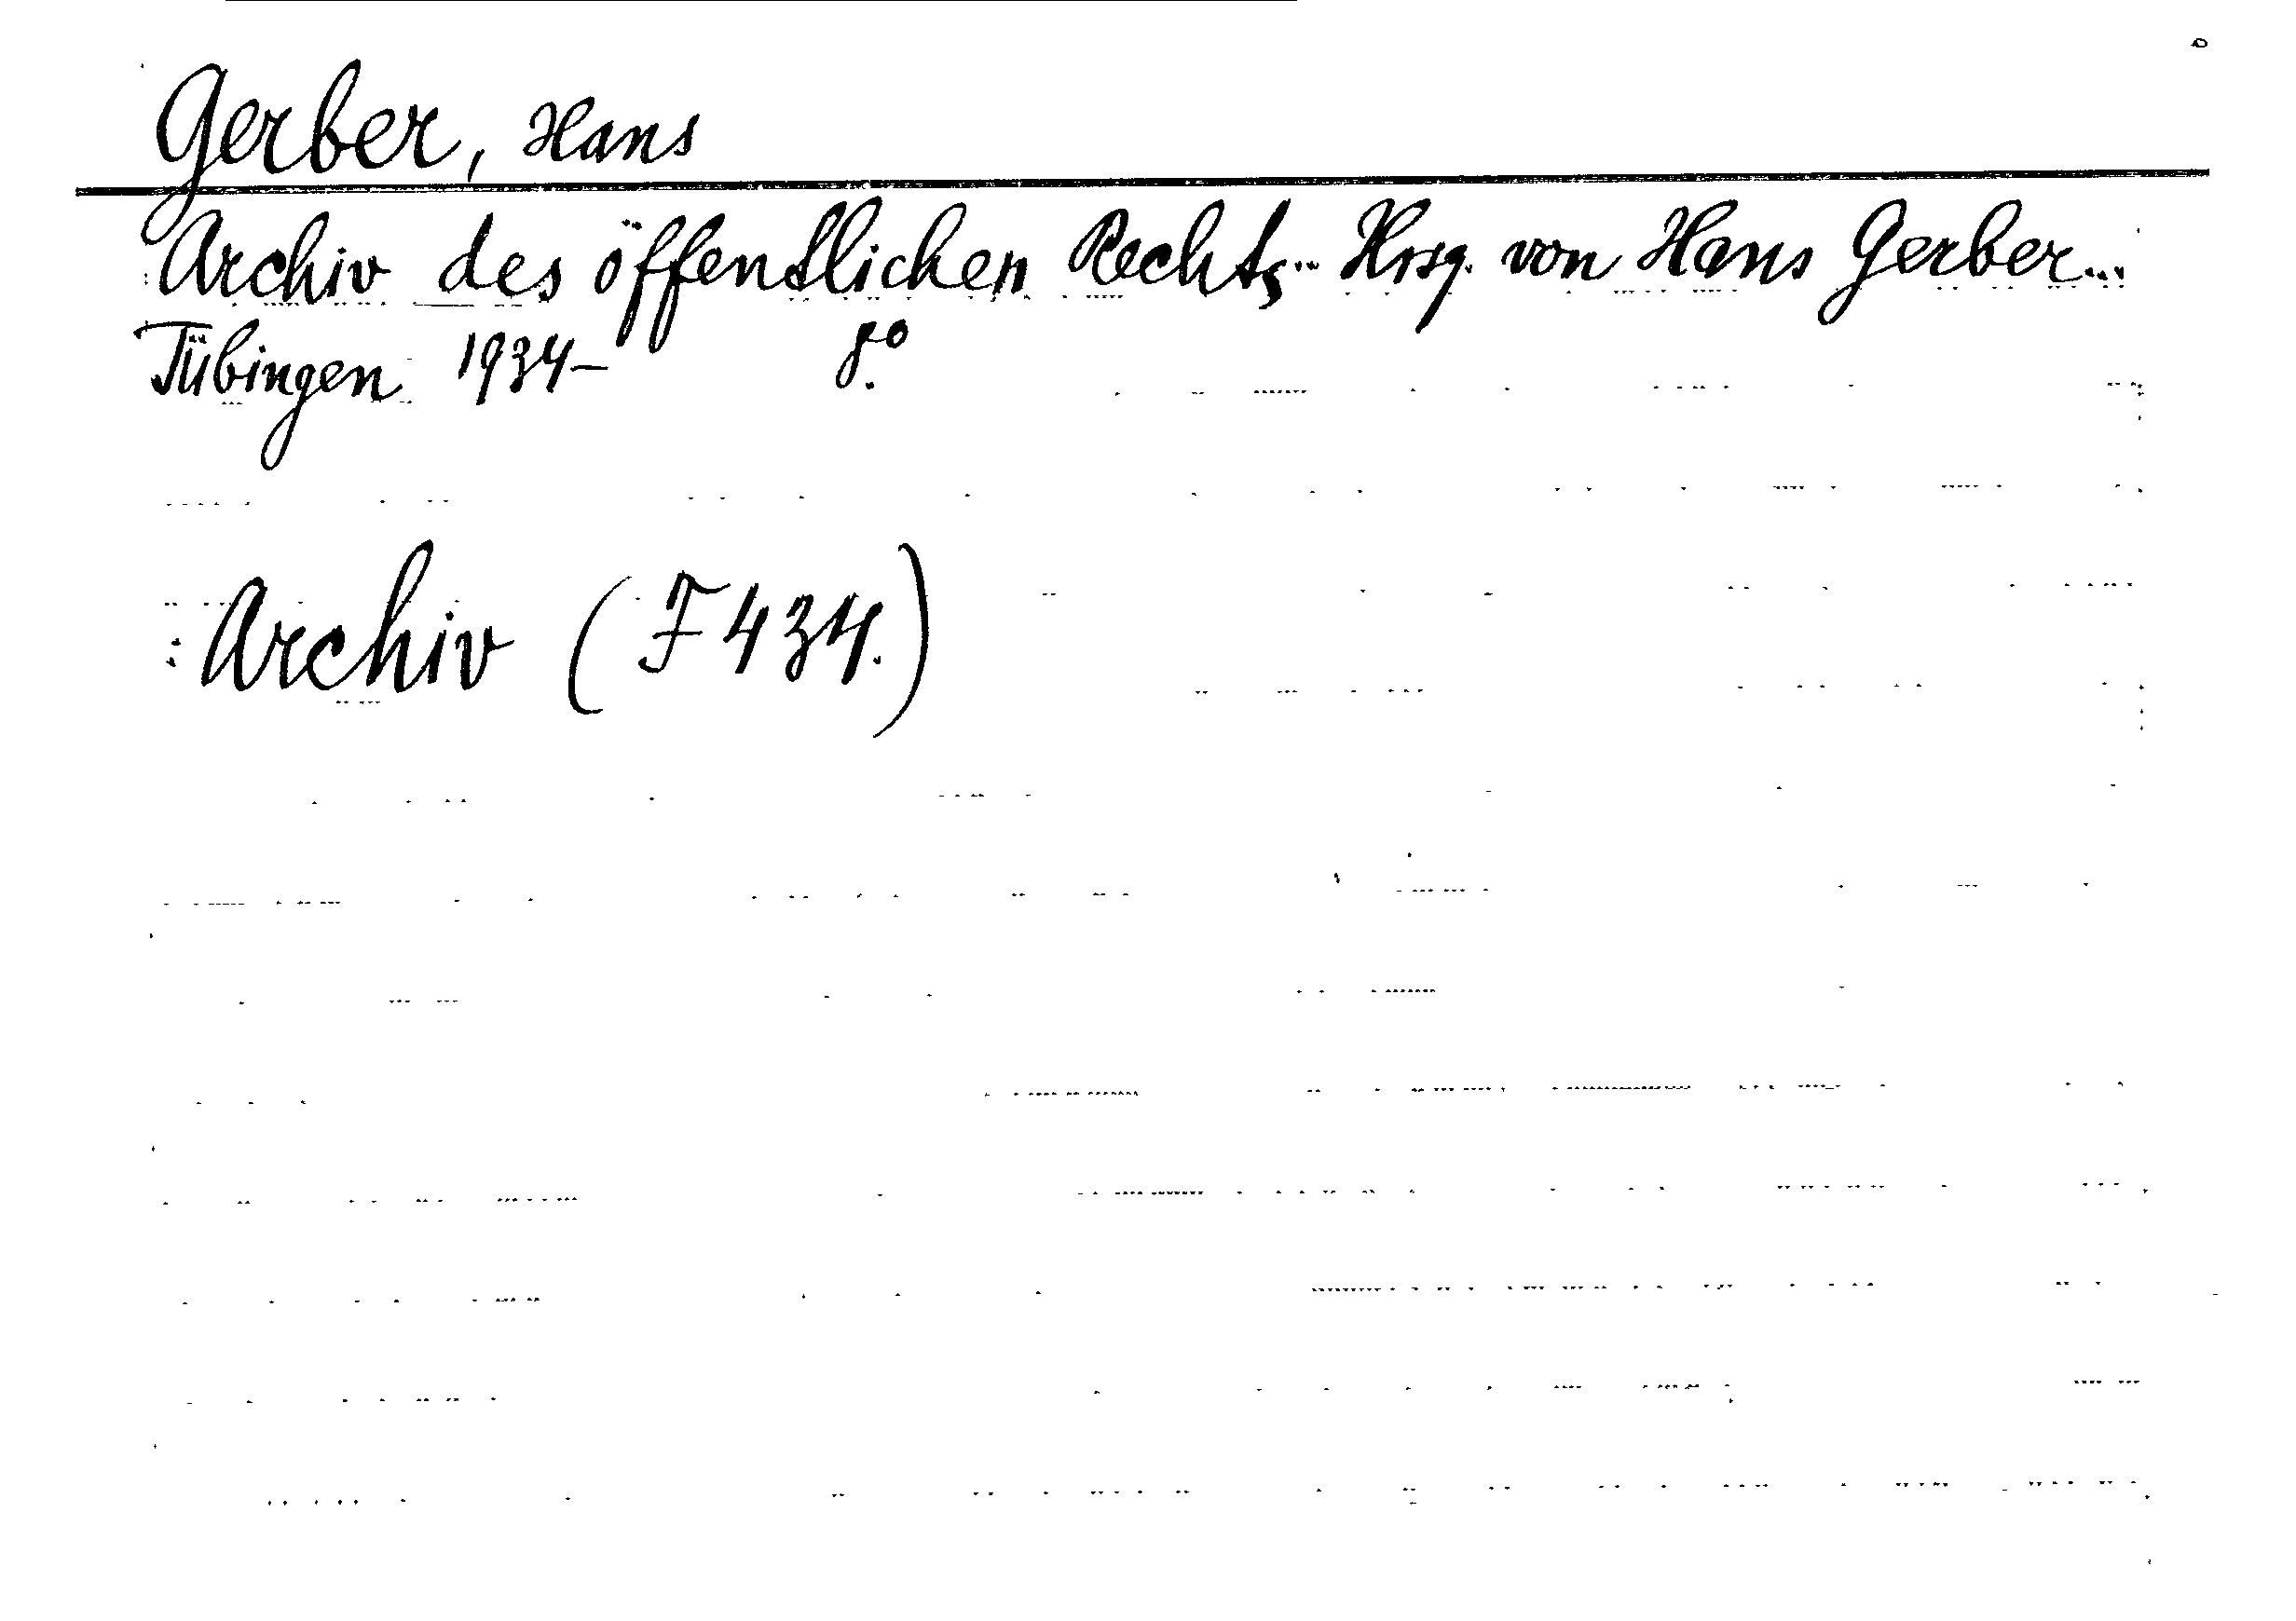 Gerber, Hans
Archiv des öffentlichen Rechts... Hrsg. von Hans Gerber...
Tübingen 1934- 8.º
Archiv (F 434.)